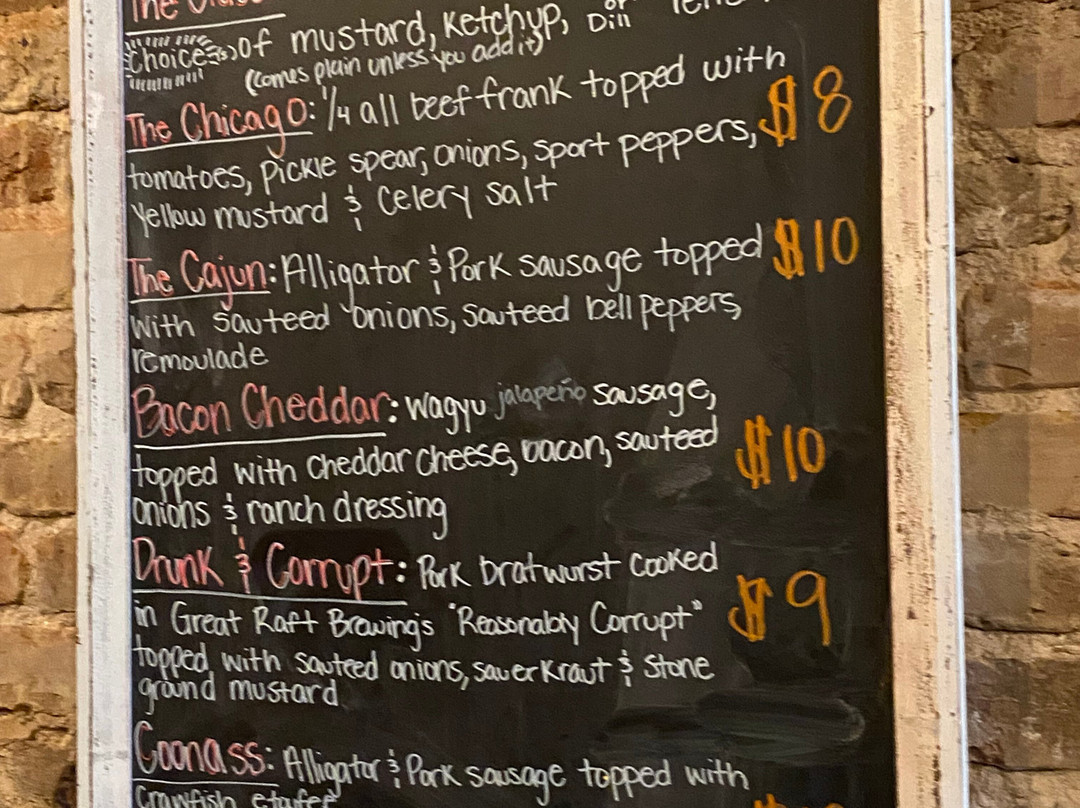 The
Choice of mustard, Ketchup, or Dill
(Comes plain unless you add it)
The Chicago: 1/4 all beef frank topped with
tomatoes, pickle spear, onions, sport peppers, $8
Yellow mustard & Celery salt
The Cajun: Alligator & Pork sausage topped $10
with sauteed onions, sauteed bell peppers,
remoulade
Bacon Cheddar: wagyu jalapeño sausage,
topped with cheddar cheese, bacon, sauteed $10
onions & ranch dressing
Drunk & Corrupt: Pork bratwurst cooked
in Great Raft Brewing's "Reasonably Corrupt" $9
topped with sauteed onions, sauerkraut & stone
ground mustard
Coonass: Alligator & Pork sausage topped with
Crawfish etufee